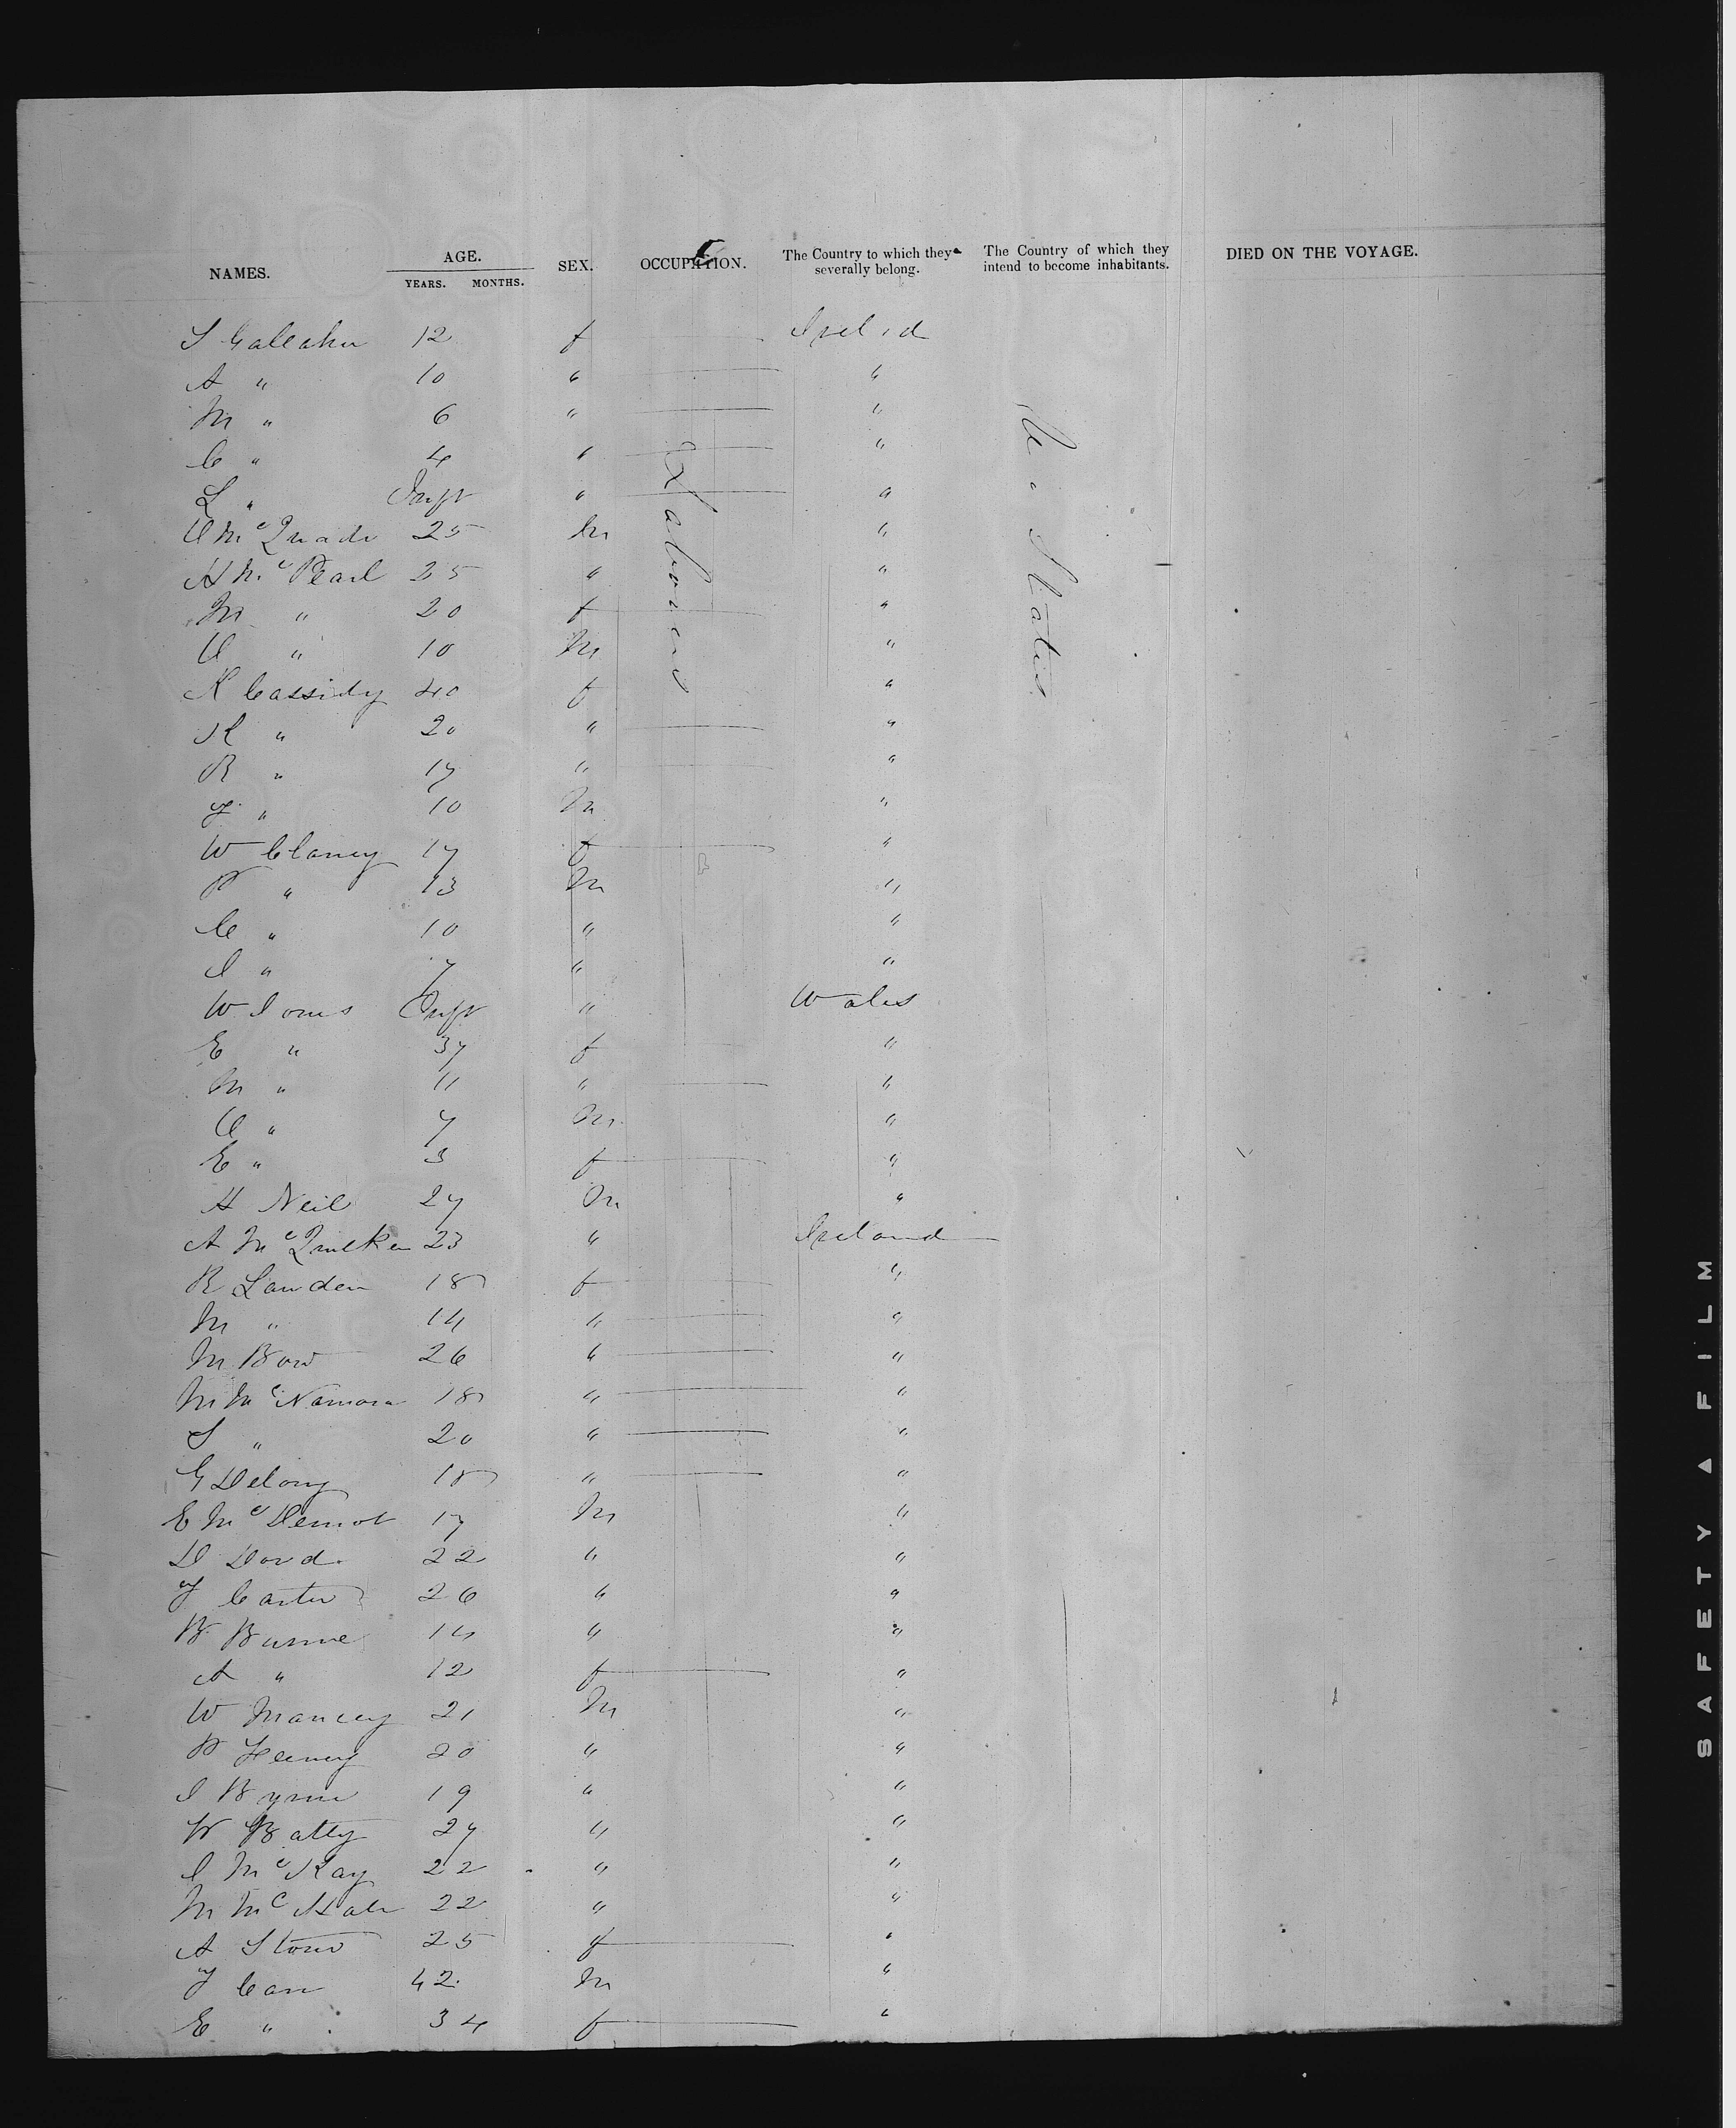 NAMES. AGE. YEARS. MONTHS. SEX. OCCUPATION. The Country to which they severally belong. The Country of which they intend to become inhabitants. DIED ON THE VOYAGE.
S Galeahu 12 f Ireland
A " 10 " "
M " 6 " "
C " 4 " "
L " Inft " "
Laborers
U. States
C McQuade 25 M "
H Mc Pearl 25 " "
M " 20 f "
C " 10 M "
K Cassidy 40 f "
K " 20 " "
R " 17 " "
J " 10 M "
W Clancy 17 f "
P " 13 M "
C " 10 " "
I " 7 " "
W Jones Inft " Wales
E " 37 f "
M " 11 " "
C " 7 M "
E " 3 f "
H Neil 27 M "
A Mc 23 " Ireland
R Landen 18 f "
M " 14 " "
M Bow 26 " "
M McNamara 18 " "
S " 20 " "
G Delong 18 " "
E McDermot 17 M "
D Dord 22 " "
J Carter 26 " "
B Burne 14 " "
A " 12 f "
W Mancey 21 M "
P Feeney 20 " "
I Byrne 19 " "
W Batty 27 " "
I McKay 22 " "
M McHale 22 " "
A Stone 25 f "
J Carr 42 M "
E " 34 f "
SAFETY ▲ FILM